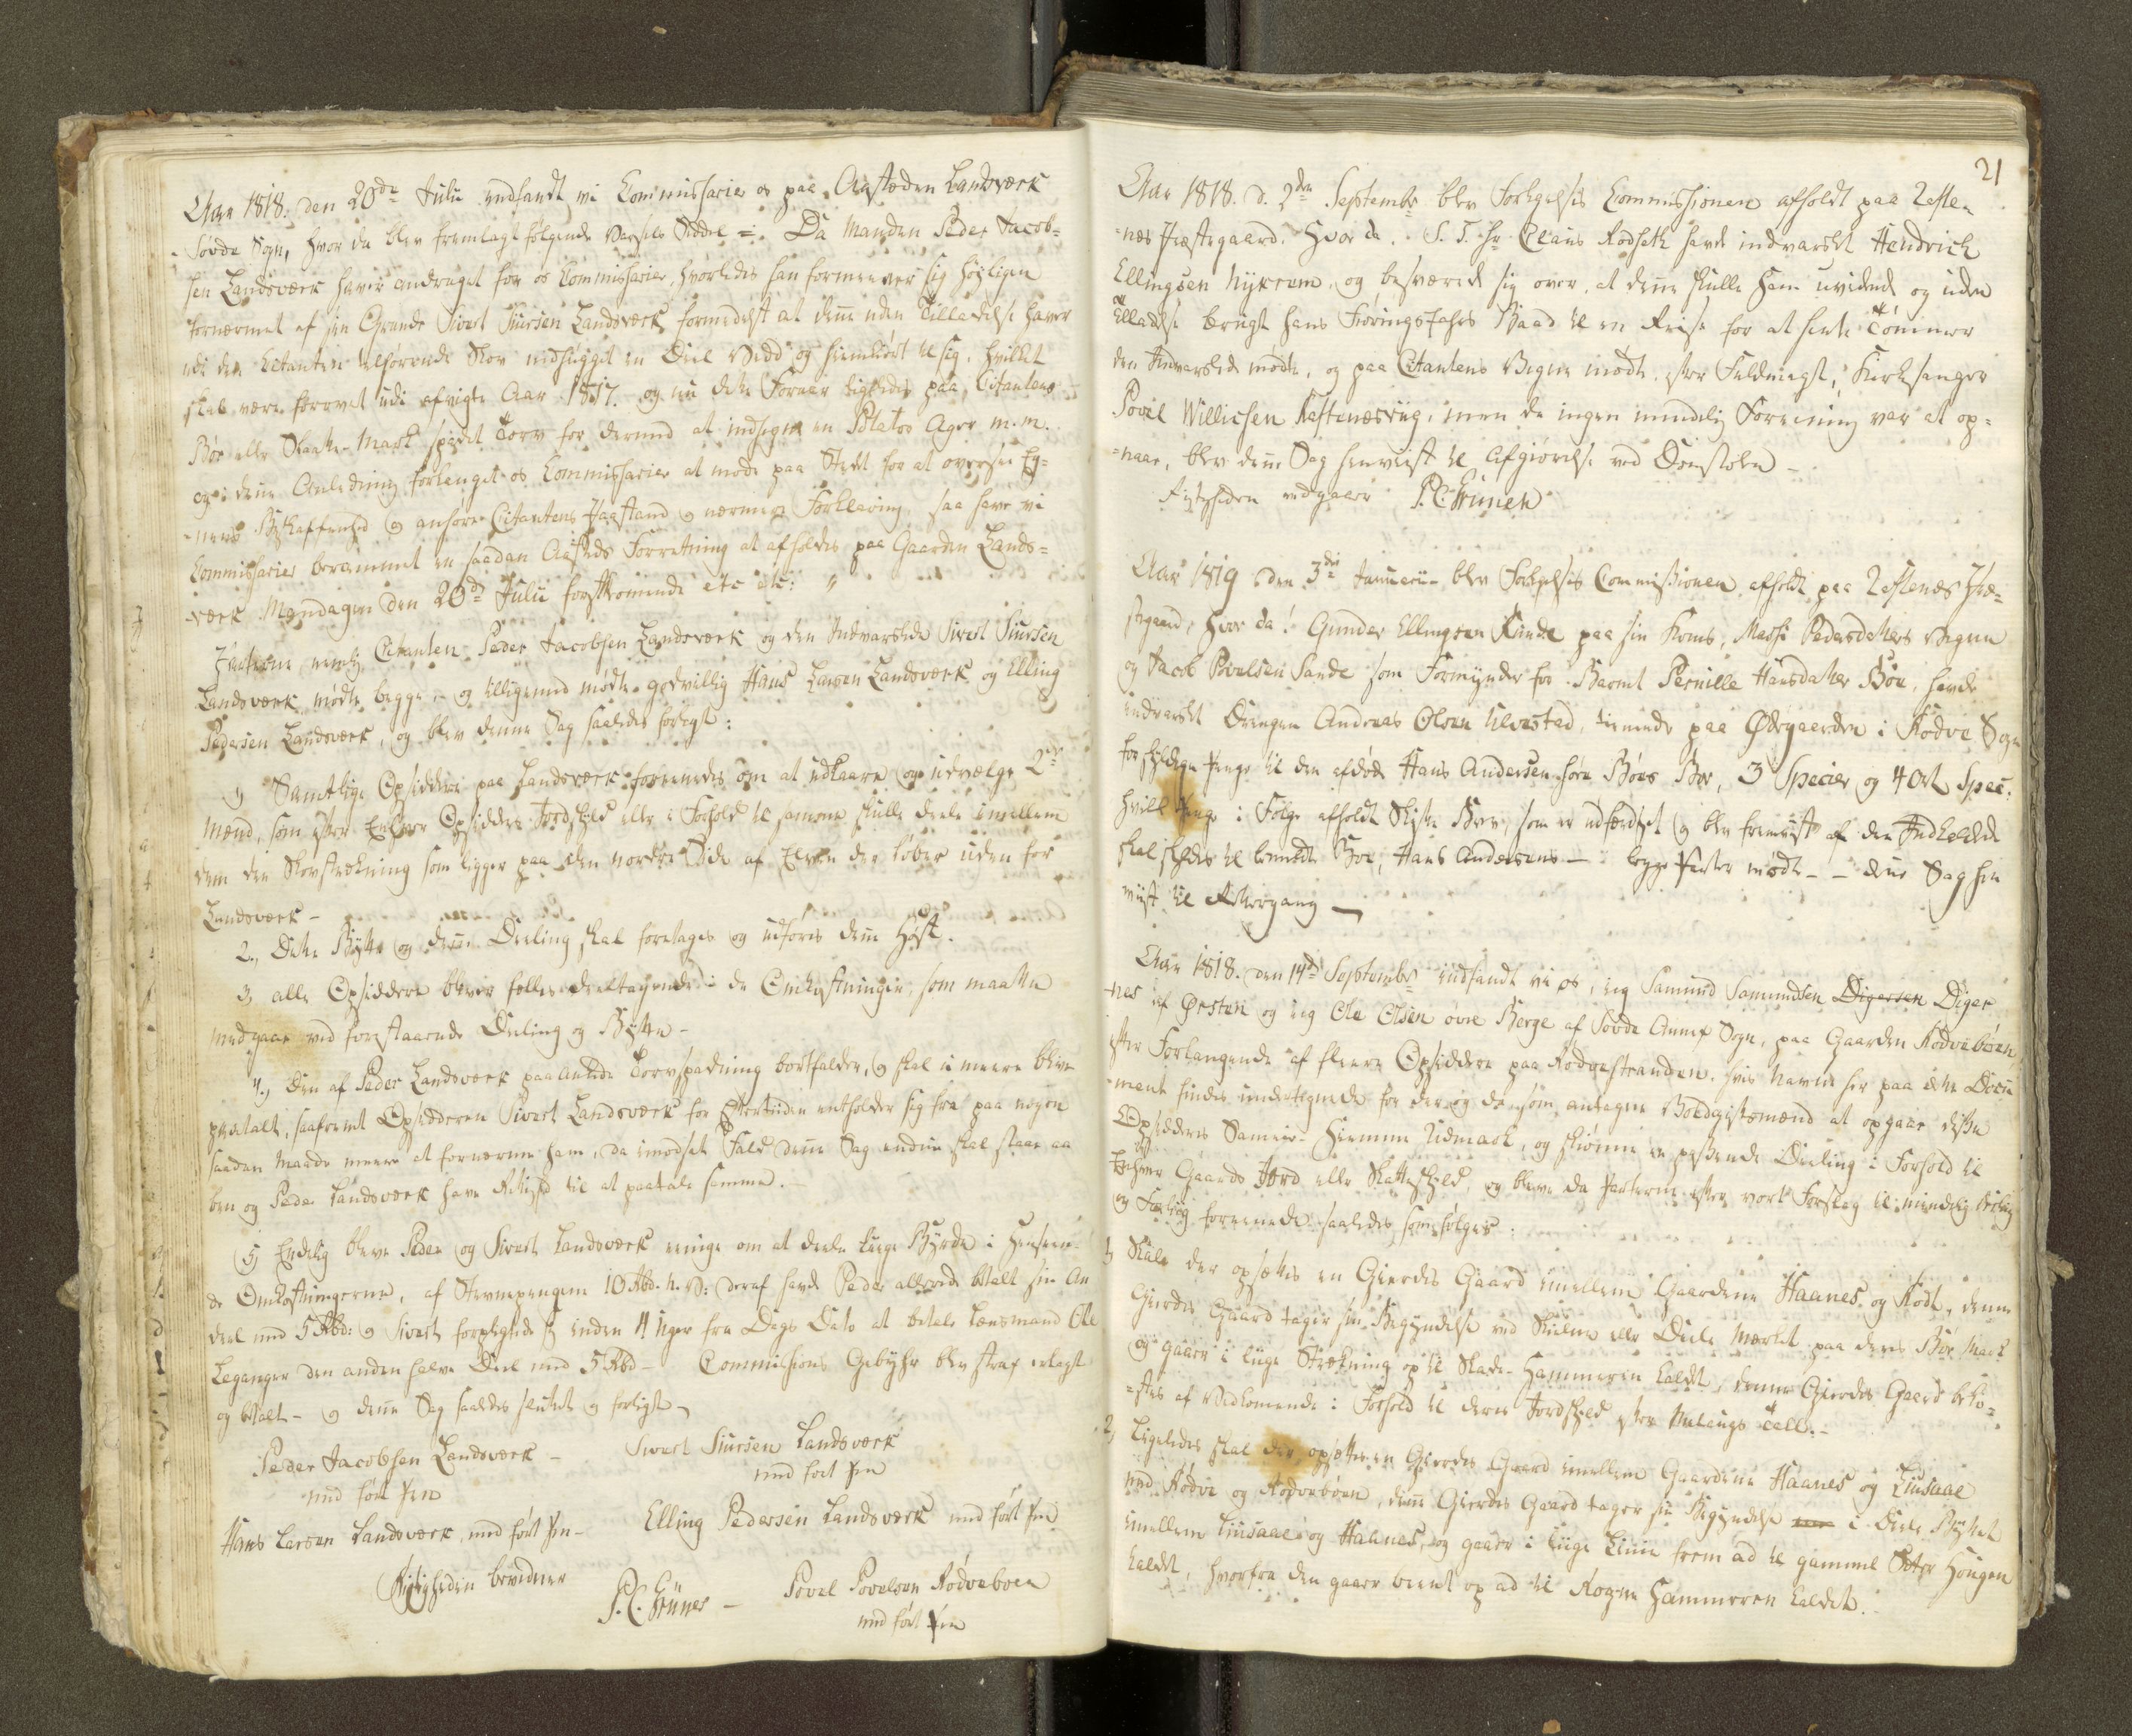 Aar 1818. den 20de Julii indfandt vi Commissarier os paa Aastæden Landsværk
Sövde Sogn, hvor da blev fremlagt følgende Varsels Seddel =. Da Manden Peder Jacob=
sen Landsværk haver andraget for os Commissarier, hvorledes han formeener sig høyligen
fornærmet af sin Grande Sivert Siursen Landsværk formedelst at denne uden Tilladelse haver
udi den Citanten tilhørende Skov nedhugget en Deel Vedd og hiemkiört til sig, hvilket
skal være skeet udi afvigte Aar 1817. og nu dette Foraar ligeledes paa Citantens
Bör eller Mark spadet Torv for dermed at indhegne en Potatos Ager m. m.
og i denne Anledning forlanget os Commissarier at møde paa Stedet for at oversee Eg=
nens Beskaffenhed og anhøre Citantens Paastand og nærmere Forklaring, saa have vi
Commissarier berammet en saadan Aasteds Forretning at afholdes paa Gaarden Lands=
værk Mandagen den 20de Julii førstkommende etc etc: "
Parterne nemlig Citanten Peder Jacobsen Landsværk og den Indvarslede Sivert Siursen
Landsværk mødte begge, og tilligemed mødte godvillig Hans Larsen Landsværk og Elling
Pedersen Landsværk, og blev denne Sag saaledes forligt:
1) Samtlige Opsiddere paa Landsværk foreenedes om at udkaare og udvælge 2de
Mænd, som efter Enhver Opsidders Jordskyld eller i Forhold til samme skulle deele imellem
dem den Skovstrækning som ligger paa den nordre Side af Elven der løber uden for
Landsværk -
2., Dette Bytte og denne Deeling skal foretages og udføres denne Høst.
3, alle Opsiddere bliver fælles deeltagende i de Omkostninger, som maatte
medgaae ved forestaaende Deeling og Bytte -
4., Den af Peder Landsværk paaankede Torvspadning bortfalder, og skal ei meere blive
paatalt, saafremt Opsidderen Sivert Landsværk for Eftertiden entholder sig fra paa nogen
saadan Maade meere at fornærme ham, da i modsat Fald denne Sag endnu skal staae aa
ben og Peder Landsværk have Rettighed til at paatale samme. -
5) Endelig bleve Peder og Sivert Landsværk eenige om at deele liige Byrde i Henseen-
de Omkostningerne, af Stevnepengene 10 Rbd. n. V: deraf havde Peder allerede betalt sin An
deel med 5 Rbd: og Sivert forpligtede sig inden 4 Uger fra Dags Dato at betale Lænsmand Ole
Leganger den anden halve Deel med 5 Rbd - Commissions Gebyhr blev straf erlagt
og betalt - og denne Sag saaledes sluttet og forligt -
Peder Jacobsen Landsværk -
med ført Pen
Sivert Siursen Landsværk
med ført Pen
Hans Larsen Landsværk, med ført Pen -
Elling Pedersen Landsværk med ført Pen
Rigtigheden bevidner
P. C. Grüner -
Povel Povelsen Rödvebøen
med ført Pen
21
Aar 1818. d. 2den September blev Forligelses Commissionen afholdt paa Leste-
=næs Præstegaard. Hvor da S. T. Hr Claus Rodseth havde indvarslet Hendrich
Ellingsen Nykrem, og besværede sig over, at denne skulle ham uvidende og uden
Tilladelse brugt hans Fiøringsfahrs Baad til en Reise for at hente Tømmer
den Indvarslede mødte, og paa Citantens Vegne mødte efter Fuldmagt, Kirkesanger
Povel Willichsen Restenæsviig, men da ingen mindelig Forening var at op=
=naae, blev denne Sag henviist til Afgiørelse ved Domstolen -
Rigtigheden vedgaaer P. C. Grüner
Aar 1819 den 3die Januarii blev Forligelses Commissionen afholdt paa Lestenæs Præ=
stegaard, hvor da: Gunder Ellingsen Rinde paa sin Kones, Massi Pedersdatters Vegne
og Jacob Povelsen Sande som Formynder for Barnet Pernille Hansdatter Böe, havde
indvarslet Drengen Andreas Olsen Ulvestad, tienende paa Ødegaarden i Rödve Sogn
for skyldige Penge til den afdøde Hans Andersen Böes Boe, 3 Specier og 4 Ort Spec:
hvilke Penge i Følge afholdt Skifte Brev, som er udfærdiget og blev fremviist af den Indkaldede
skal skyldes til bemeldte Boe, Hans Andersens - begge Parter mødte - - denne Sag hen
viist til Rettergang -
Aar 1818. den 14de September indfandt vi os, ieg Samund Samundsen Digersen Diger
nes af Ørsten og ieg Ole Olsen øvre Berge af Sövde Annex Sogn, paa Gaarden Rödvebøen,
efter Forlangende af fleere Opsiddere paa Rödvestranden, hvis Navne her paa dette Docu
=ment findes undertegnede for der og som antagne Voldgiftsmænd at opgaae disse
Opsidderes Sameie Hiemme Udmark, og skiønne en passende Deeling i Forhold til
Enhver Gaards Jord eller Skatteskyld, og bleve da Parterne efter vort Forslag til mindelig Deeling
og Forliig foreenede saaledes som følger:
1) Skulde der opsættes en Gierdes Gaard imellem Gaardene Haanes og Rödt, denne
Gierdes Gaard tager sin Begyndelse ved Skielne eller Deele Mærket paa deres Bør Mark
og gaaer i liige Strækning op til Skare-Hammeren kaldt, denne Gierdes Gaard beko=
=stes af Vedkommende i Forhold til deres Jordskyld efter Melaugs Tall. -
2, Ligeledes skal der opsættes en Gierdes Gaard imellem Gaardene Haanes og Liusaae
ned Rödve og Rödvebøen, denne Gierdes Gaard tager sin Begyndelse i Deele Byttet
imellem Liusaae og Haanes, og gaaer i liige Linie frem ad til gammel Sæter Hougen
kaldt, hvorfra den gaaer beent op ad til Hammeren kaldet.